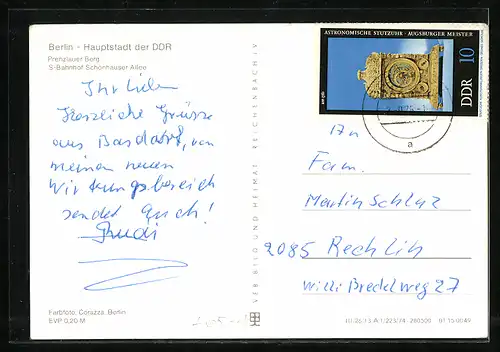 Berlin - Hauptstadt der DDR
Prenzlauer Berg
S-Bahnhof Schönhauser Allee
Ihr Lieben
Herzliche Grüsse
aus Basdorf, von
meinen neuen
Wirkungsbereich
sendet Euch!
Rudi
Farbfoto: Corazza, Berlin
EVP 0,20 M
VEB BILD UND HEIMAT REICHENBACH I.V.
ASTRONOMISCHE STUTZUHR · AUGSBURGER MEISTER
DDR 10
a
An
Fam.
Martin Schlaz
2085 Rechlin
Willi Bredelweg 27
III/26/13 A 1/223/74 260500 01 15 0049